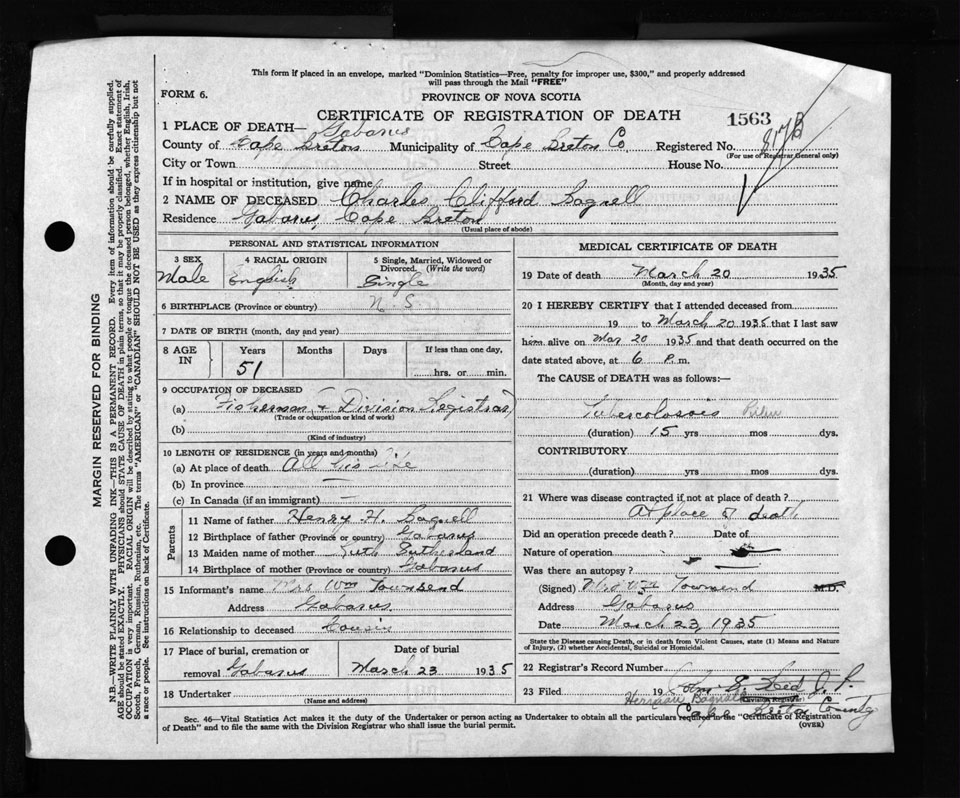 This form if placed in an envelope, marked "Dominion Statistics—Free, penalty for improper use, $300," and properly addressed
will pass through the Mail "FREE"
FORM 6.
PROVINCE OF NOVA SCOTIA
CERTIFICATE OF REGISTRATION OF DEATH
1563
1 PLACE OF DEATH— Gabarus
County of Cape Breton Municipality of Cape Breton Co. Registered No.
(For use of Registrar General only)
City or Town Street House No.
If in hospital or institution, give name
2 NAME OF DECEASED Charles Clifford Bagnell
Residence Gabarus, Cape Breton
(Usual place of abode)
PERSONAL AND STATISTICAL INFORMATION
3 SEX 4 RACIAL ORIGIN 5 Single, Married, Widowed or
Divorced. (Write the word)
Male English Single
6 BIRTHPLACE (Province or country) N. S.
7 DATE OF BIRTH (month, day and year)
8 AGE IN Years Months Days If less than one day,
51 hrs. or min.
9 OCCUPATION OF DECEASED
(a) Fisherman & Division Registrar
(Trade or occupation or kind of work)
(b)
(Kind of industry)
10 LENGTH OF RESIDENCE (in years and months)
(a) At place of death All his life
(b) In province —
(c) In Canada (if an immigrant) —
Parents
11 Name of father Henry H. Bagnell
12 Birthplace of father (Province or country) Gabarus
13 Maiden name of mother Ruth Sutherland
14 Birthplace of mother (Province or country) Gabarus
15 Informant's name Mrs Wm Townsend
Address Gabarus
16 Relationship to deceased Cousin
17 Place of burial, cremation or Date of burial
removal Gabarus March 23 1935
18 Undertaker
(Name and address)
MEDICAL CERTIFICATE OF DEATH
19 Date of death March 20 1935
(Month, day and year)
20 I HEREBY CERTIFY that I attended deceased from
19 to March 20 1935 that I last saw
him alive on Mar 20 1935 and that death occurred on the
date stated above, at 6 P. m.
The CAUSE of DEATH was as follows:—
Tubercolosis
(duration) 15 yrs mos dys.
CONTRIBUTORY
(duration) yrs mos dys.
21 Where was disease contracted if not at place of death?
At place of death
Did an operation precede death? Date of
Nature of operation
Was there an autopsy?
(Signed) Mrs Wm Townsend M.D.
Address Gabarus
Date March 23, 1935
State the Disease causing Death, or in death from Violent Causes, state (1) Means and Nature
of Injury, (2) whether Accidental, Suicidal or Homicidal.
22 Registrar's Record Number
23 Filed 19
Division Registrar
Herman Bagnall
Cape Breton County
Sec. 46—Vital Statistics Act makes it the duty of the Undertaker or person acting as Undertaker to obtain all the particulars required in the "Certificate of Registration
of Death" and to file the same with the Division Registrar who shall issue the burial permit.
(OVER)
MARGIN RESERVED FOR BINDING
N.B.—WRITE PLAINLY WITH UNFADING INK—THIS IS A PERMANENT RECORD. Every item of information should be carefully supplied.
AGE should be stated EXACTLY. PHYSICIANS should STATE CAUSE OF DEATH in plain terms, so that it may be properly classified. Exact statement of
OCCUPATION is very important. RACIAL ORIGIN will be described by stating to what people or tongue the deceased person belonged, whether English, Irish,
Scotch, French, German, Russian, Ruthenian, etc. The terms "AMERICAN" or "CANADIAN" SHOULD NOT BE USED as they express citizenship but not
a race or people. See instructions on back of Certificate.